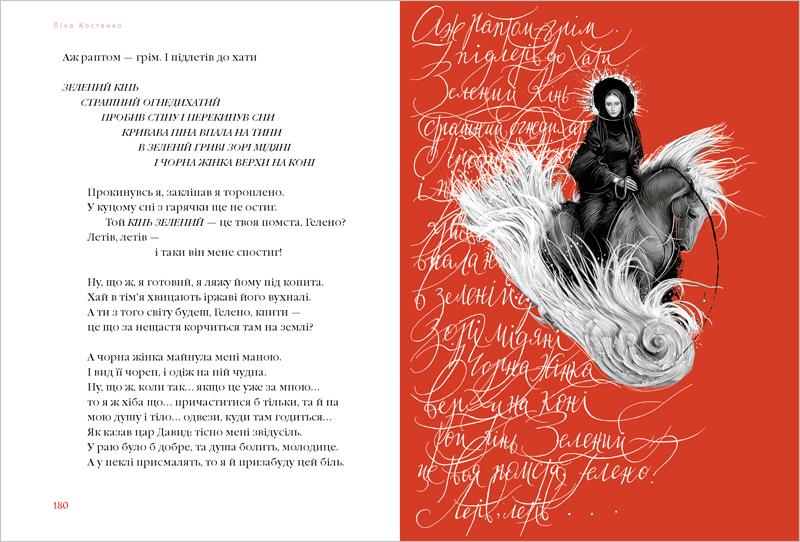 Ліна Костенко
Аж раптом — грім. І підлетів до хати
ЗЕЛЕНИЙ КІНЬ
СТРАШНИЙ ОГНЕДИХАТИЙ
ПРОБИВ СТІНУ І ПЕРЕКИНУВ СНИ
КРИВАВА ПІНА ВПАЛА НА ТИНИ
В ЗЕЛЕНІЙ ГРИВІ ЗОРІ МІДЯНІ
І ЧОРНА ЖІНКА ВЕРХИ НА КОНІ
Прокинувсь я, закліпав я тороплено.
У куцому сні з гарячки ще не остиг.
Той КІНЬ ЗЕЛЕНИЙ — це твоя помста, Гелено?
Летів, летів —
і таки він мене спостиг!
Ну, що ж, я готовий, я ляжу йому під копита.
Хай в тім’я хвицають іржаві його вухналі.
А ти з того світу будеш, Гелено, кпити —
це що за нещастя корчиться там на землі?
А чорна жінка майнула мені маною.
І вид її чорен, і одіж на ній чудна.
Ну, що ж, коли так... якщо це уже за мною...
то я ж хіба що... причаститися б тільки, та й на
мою душу і тіло... одвези, куди там годиться...
Як казав цар Давид: тісно мені звідусіль.
У раю було б добре, та душа болить, молодице.
А у пеклі присмалять, то я й призабуду цей біль.
180
Аж раптом грім.
І підлетів до хати
Зелений Кінь
Страшний огнедихат
Проб
і п
впала н
в зеленій
Зорі мідяні
І Чорна Жінка
верхи на Коні
Той Кінь Зелений
це твоя помста, Гелено?
Летів, летів . . . .